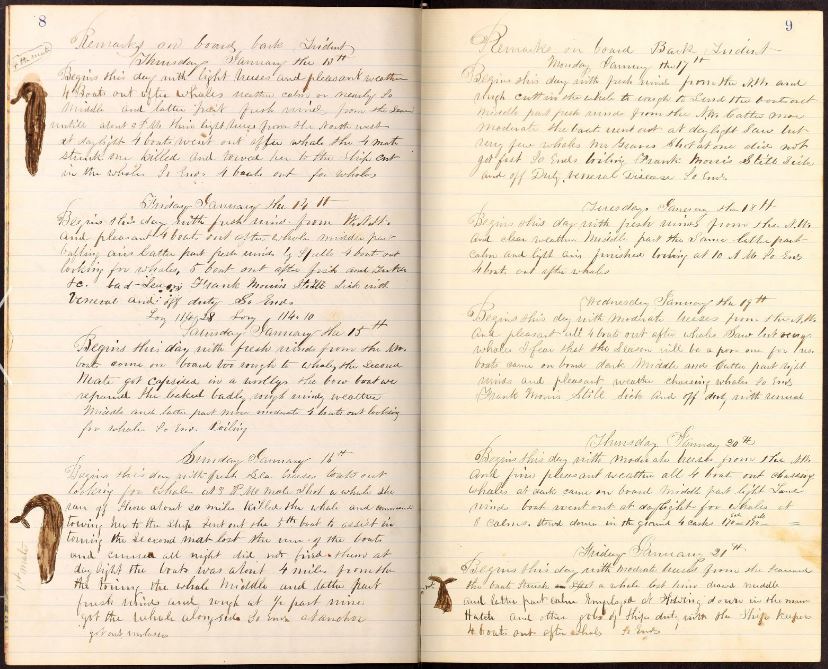 8
Remarks on board bark Trident
Thursday January the 13th
Begins this day with light breezes and pleasant weather
4 Boats out after whales weather calm or nearly so
Middle and latter part fresh wind, from the
untill about 2 PM then light from the North west
at daylight 4 boats went out after whale the 4 mate
struck one killed and towed her to the ship cut
in the whale So Ends 4 boats out for whale
Friday January the 14th
Begins this day with fresh wind from
and pleasant 4 boats out after whale middle part
latter part fresh winds by Spells 4 boat out
looking for whales, 5 boat out after fish and
&c. Frank Morris Still Sick with
Veneral and off duty So Ends
Log 114.28 Long 114.10
Saturday January the 15th
Begins this day with fresh wind from the NW.
boats come on board too rough to whale, the second
Mate got capsized in a the bow boat we
leaked badly, rough windy weather
Middle and latter part more moderate 4 boats out looking
for whale So Ends boiling
Sunday January 16th
Begins this day with fresh Sea breezes boats out
looking for whales at 2 P.M. Mate Shot a whale she
ran of Shore about 20 miles killed the whale and commenced
towing her to the Ship Sent out the 5th boat to assist in
towing the Second mat lost the run of the boats
and cruised all night did not find them at
day light the boats was about 4 miles from the
towing the whale Middle and latter part
fresh winds and rough at part nine
got the whale alongside So Ends
1st mate
9
Remarks on board Bark Trident
Monday January the 17th
Begins this day with fresh wind from the N.W. and
rough cutt in the whale to rough to Send the boats out
middle part fresh winds from the N.W. latter more
moderate the boats went out at daylight Saw but
very few whales Mr Shot at one did not
get fast So Ends boiling Frank Morris Still Sick
and off Duty Veneral Disease So Ends
Tuesday January the 18th
Begins this day with fresh winds from the N.W.
and clear weather Middle part the Same latter part
calm and light airs finished boiling at 10 A.M. So Ends
4 boats out after whales
Wednesday January the 19th
Begins this day with moderate breezes from the N.W.
and pleasant all 4 boat out after whales Saw but very
whales I fear that the Season will be a poor one for us
boats came on board dark Middle and latter part light
winds and pleasant weather chaseing whales So Ends
Frank Morris Still Sick and off duty with veneral
Thursday January 20th
Begins this day with moderate breeze from the N.W.
and fine pleasant weather all 4 boat out chaseing
whales at dark came on board Middle part light Land
wind boat went out at daylight for whales at
8 calms. Stowd down in the ground 4 casks
Friday January 21th
Begins this day with moderate breeze from the
the boat Struck a whale lost him drawd middle
and latter part calm Employed at Stowing down in the main
Hatch and other jobs of Ships duty, with the Ship keeper
4 boats out after whales So Ends